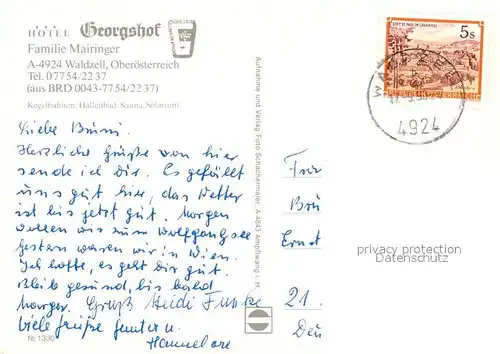 HOTEL Georgshof
Familie Mairinger
A-4924 Waldzell, Oberösterreich
Tel. 07754/2237
(aus BRD 0043-7754/2237)
Kegelbahnen, Hallenbad, Sauna, Solarium.
Liebe
Herzliche Grüße von hier
sende ich dir. Es gefällt
uns gut hier, das Wetter
ist bis jetzt gut. Morgen
wollen wir zum Wolfgangsee
gestern waren wir in Wien.
Ich hoffe, es geht dir gut.
Bleib gesund, bis bald
Gruß Heidi Funke
viele Grüße Gunter u.
Hannelore
Nr. 1330
Aufnahme und Verlag Foto Schachermaier, A-4843 Ampflwang i. H.
STIFT ST. PAUL IM LAVANTTAL
5s
4924
Ernst
21.
privacy protection
Datenschutz